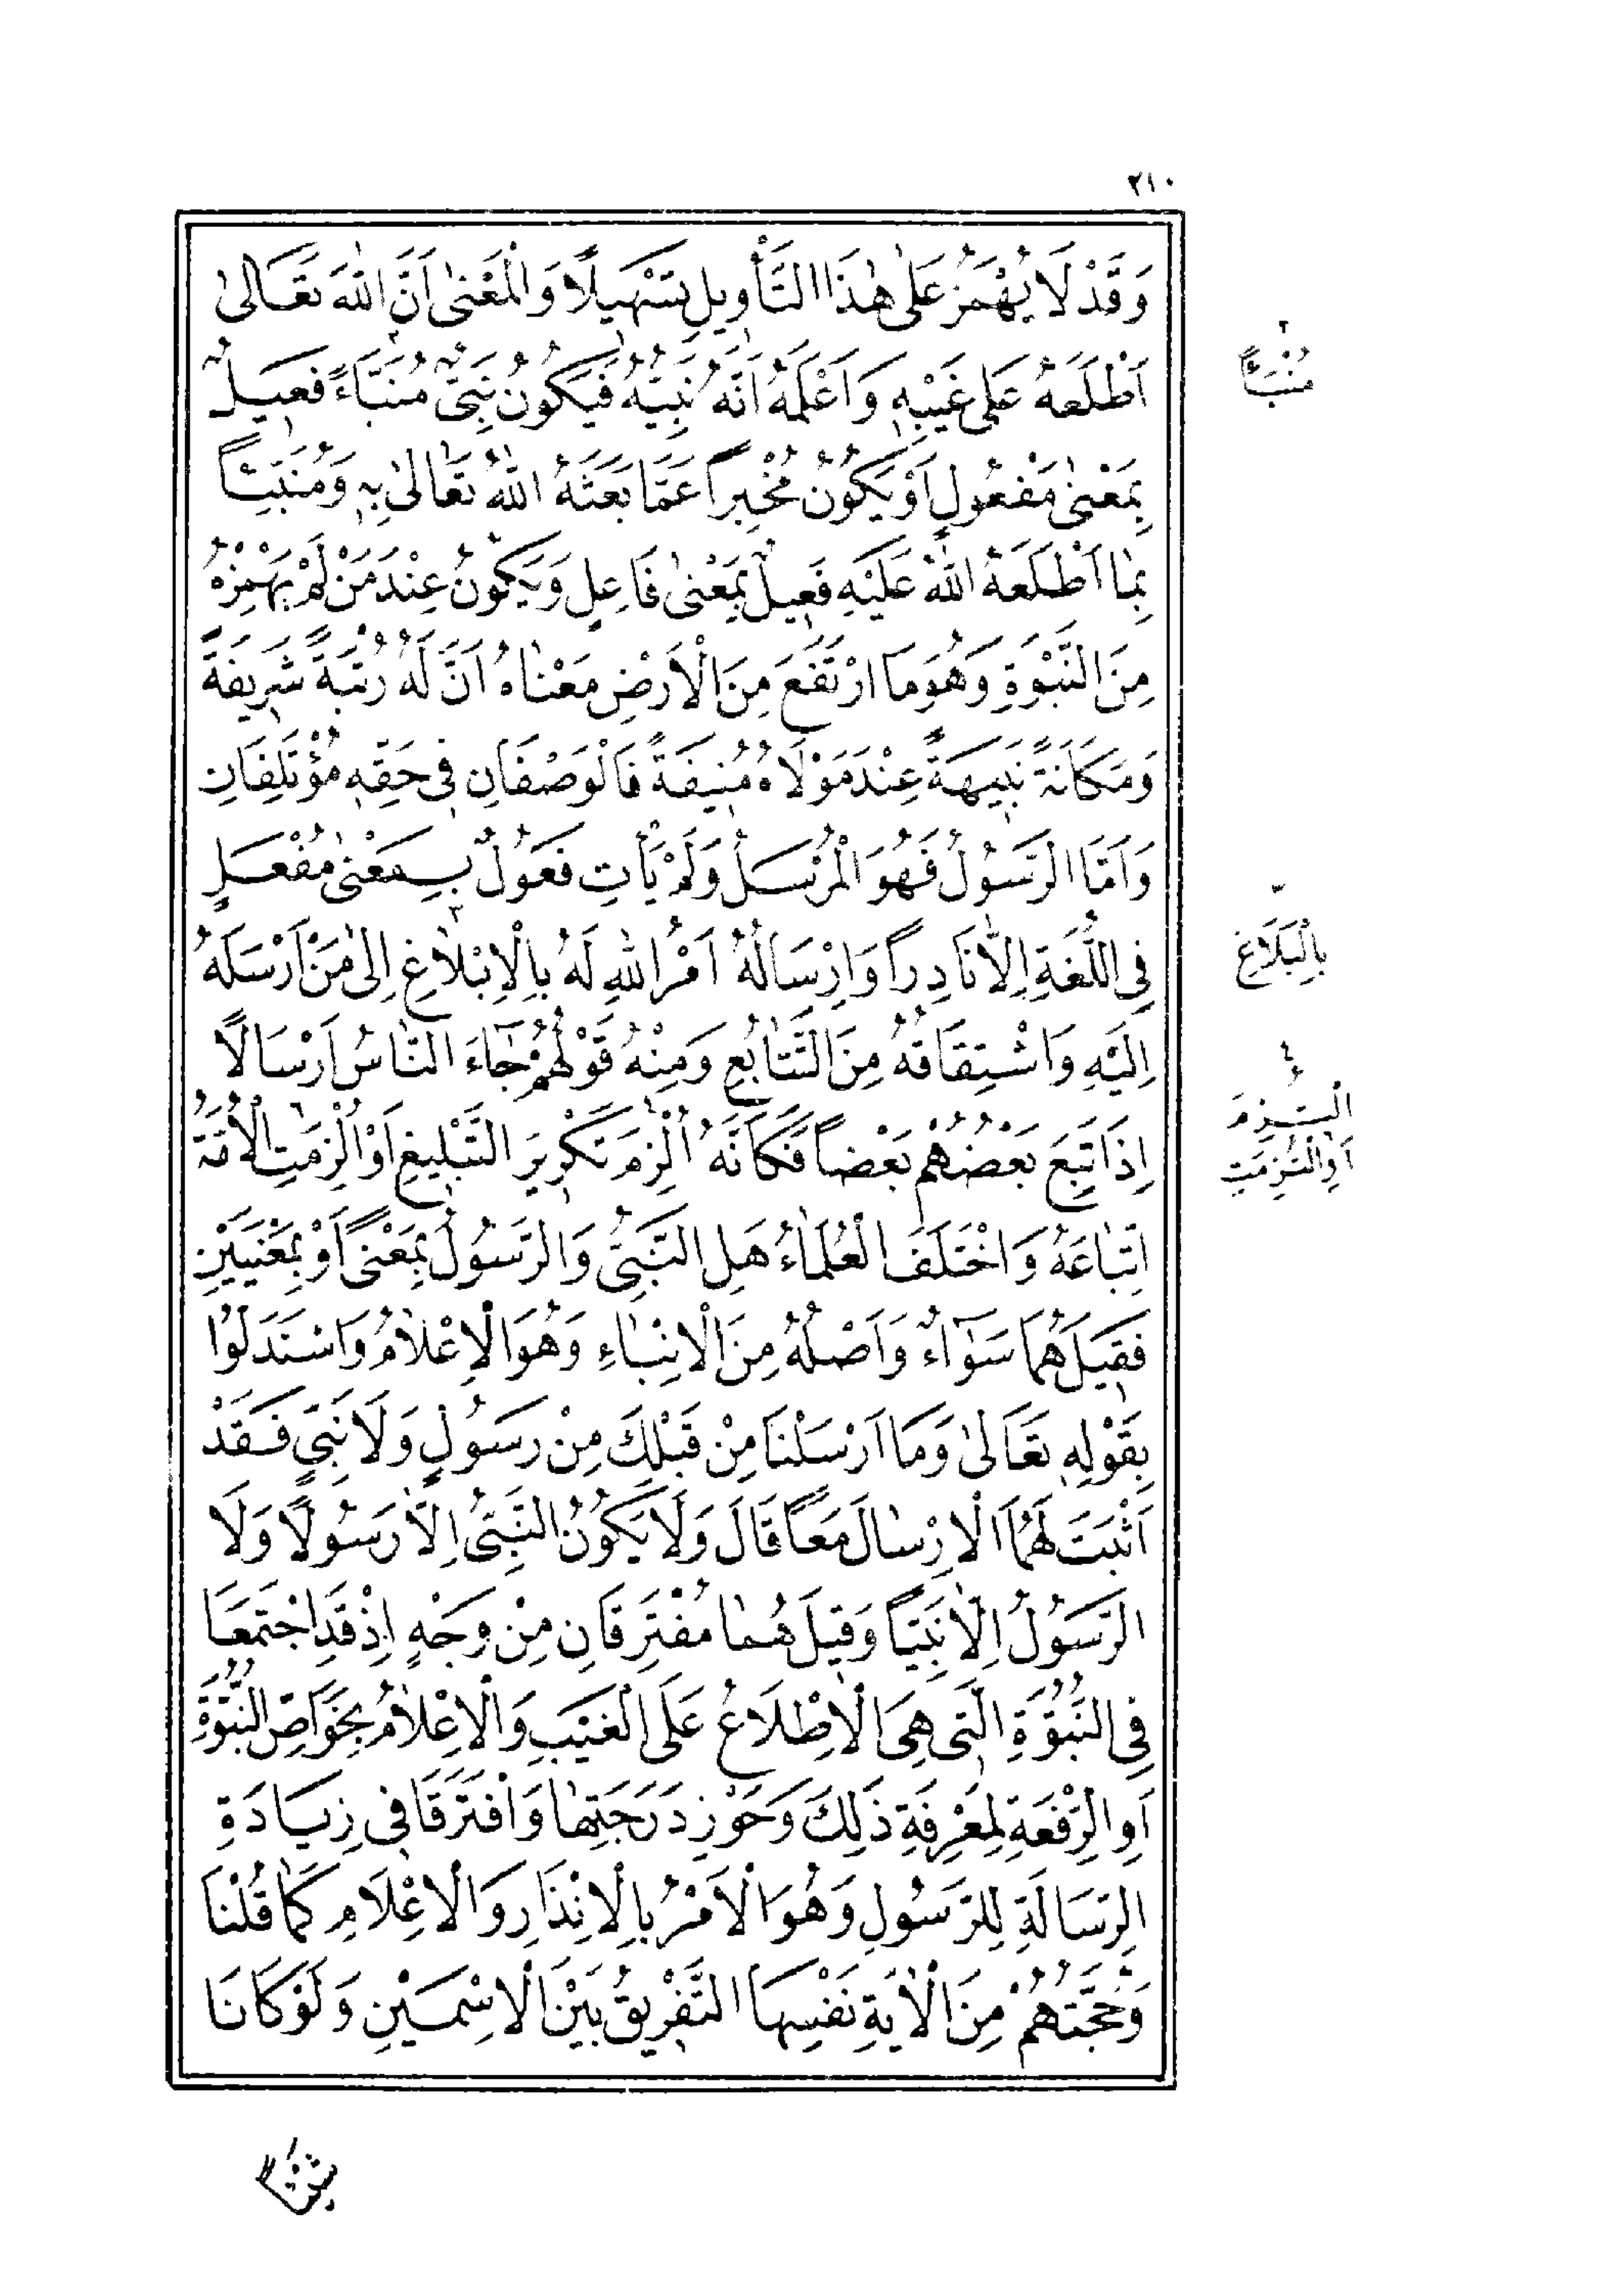 ٢١٠
وَقَدْ لَا يُهْمَزُ عَلٰى هٰذَا التَّأْوِيلِ تَسْهِيلًا وَالْمَعْنٰى اَنَّ اللّٰهَ تَعَالىٰ
اَطْلَعَهُ عَلٰى غَيْبِهِ وَاَعْلَمَهُ اَنَّهُ نَبِيُّهُ فَيَكُونُ نَبِىٌّ مُنَبَّاءً فَعِيلٌ
بِمَعْنٰى مَفْعُولٍ اَوْ يَكُونُ مُخْبِرًا عَمَّا بَعَثَهُ اللّٰهُ تَعَالىٰ بِهِ وَمُنَبِّئًا
بِمٰا اَطْلَعَهُ اللّٰهُ عَلَيْهِ فَعِيلٌ بِمَعْنٰى فَاعِلٍ وَيَكُونُ عِنْدَ مَنْ لَمْ يَهْمِزْهُ
مِنَ النَّبْوَةِ وَهُوَ مَا ارْتَفَعَ مِنَ الْاَرْضِ مَعْنٰاهُ اَنَّ لَهُ رُتْبَةً شَرِيفَةً
وَمَكَانَةً نَبِيهَةً عِنْدَ مَوْلَاهُ مُنِيفَةً فَالْوَصْفَانِ فِى حَقِّهِ مُؤْتَلِفَانِ
وَاَمَّا الرَّسُولُ فَهُوَ الْمُرْسَلُ وَلَمْ يَأْتِ فَعُولٌ بِمَعْنٰى مُفْعَلٍ
فِى اللُّغَةِ اِلَّا نَادِرًا وَاِرْسَالُهُ اَمْرُ اللّٰهِ لَهُ بِالْاِبْلٰاغِ اِلىٰ مَنْ اَرْسَلَهُ
اِلَيْهِ وَاشْتِقَاقُهُ مِنَ التَّتٰابُعِ وَمِنْهُ قَوْلُهُمْ جٰاءَ النّٰاسُ اَرْسَالًا
اِذَا تَبِعَ بَعْضُهُمْ بَعْضًا فَكَاَنَّهُ اُلْزِمَ تَكْرِيرَ التَّبْلِيغِ اَوْ اُلْزِمَتِ الْاُمَّةُ
اِتِّبٰاعَهُ وَاخْتَلَفَ الْعُلَمٰاءُ هَلِ النَّبِىُّ وَالرَّسُولُ بِمَعْنًى اَوْ بِمَعْنَيَيْنِ
فَقِيلَ هُمَا سَوٰاءٌ وَاَصْلُهُ مِنَ الْاِنْبٰاءِ وَهُوَ الْاِعْلٰامُ وَاسْتَدَلُّوا
بِقَوْلِهِ تَعَالىٰ وَمَا اَرْسَلْنَا مِنْ قَبْلِكَ مِنْ رَسُولٍ وَلَا نَبِىٍّ فَقَدْ
اَثْبَتَ لَهُمَا الْاِرْسٰالَ مَعًا قَالَ وَلَا يَكُونُ النَّبِىُّ اِلَّا رَسُولًا وَلَا
الرَّسُولُ اِلَّا نَبِيًّا وَقِيلَ هُمٰا مُفْتَرِقَانِ مِنْ وَجْهٍ اِذْ قَدِ اجْتَمَعَا
فِى النُّبُوَّةِ الَّتِى هِىَ الْاِطْلَاعُ عَلَى الْغَيْبِ وَالْاِعْلٰامُ بِخَوَاصِّ النُّبُوَّةِ
اَوِ الرِّفْعَةِ لِمَعْرِفَةِ ذٰلِكَ وَحَوْزِ دَرَجَتِهٰا وَافْتَرَقَا فِى زِيَادَةِ
الرِّسَالَةِ لِلرَّسُولِ وَهُوَ الْاَمْرُ بِالْاِنْذَارِ وَالْاِعْلَامِ كَمٰا قُلْنَا
وَحُجَّتُهُمْ مِنَ الْاٰيَةِ نَفْسِهَا التَّفْرِيقُ بَيْنَ الْاِسْمَيْنِ وَلَوْ كَانَا
٢
مُنَبَّأً
٣
بِالْبَلَاغِ
٤
الْتَزِمَ
اَوِ الْتُزِمَتِ
شَيْئًا